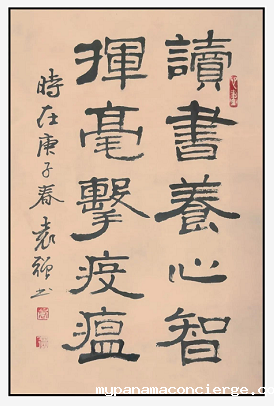 讀書養心智
揮毫擊疫瘟
時在庚子春袁禪书
mypanamaconcierge.com